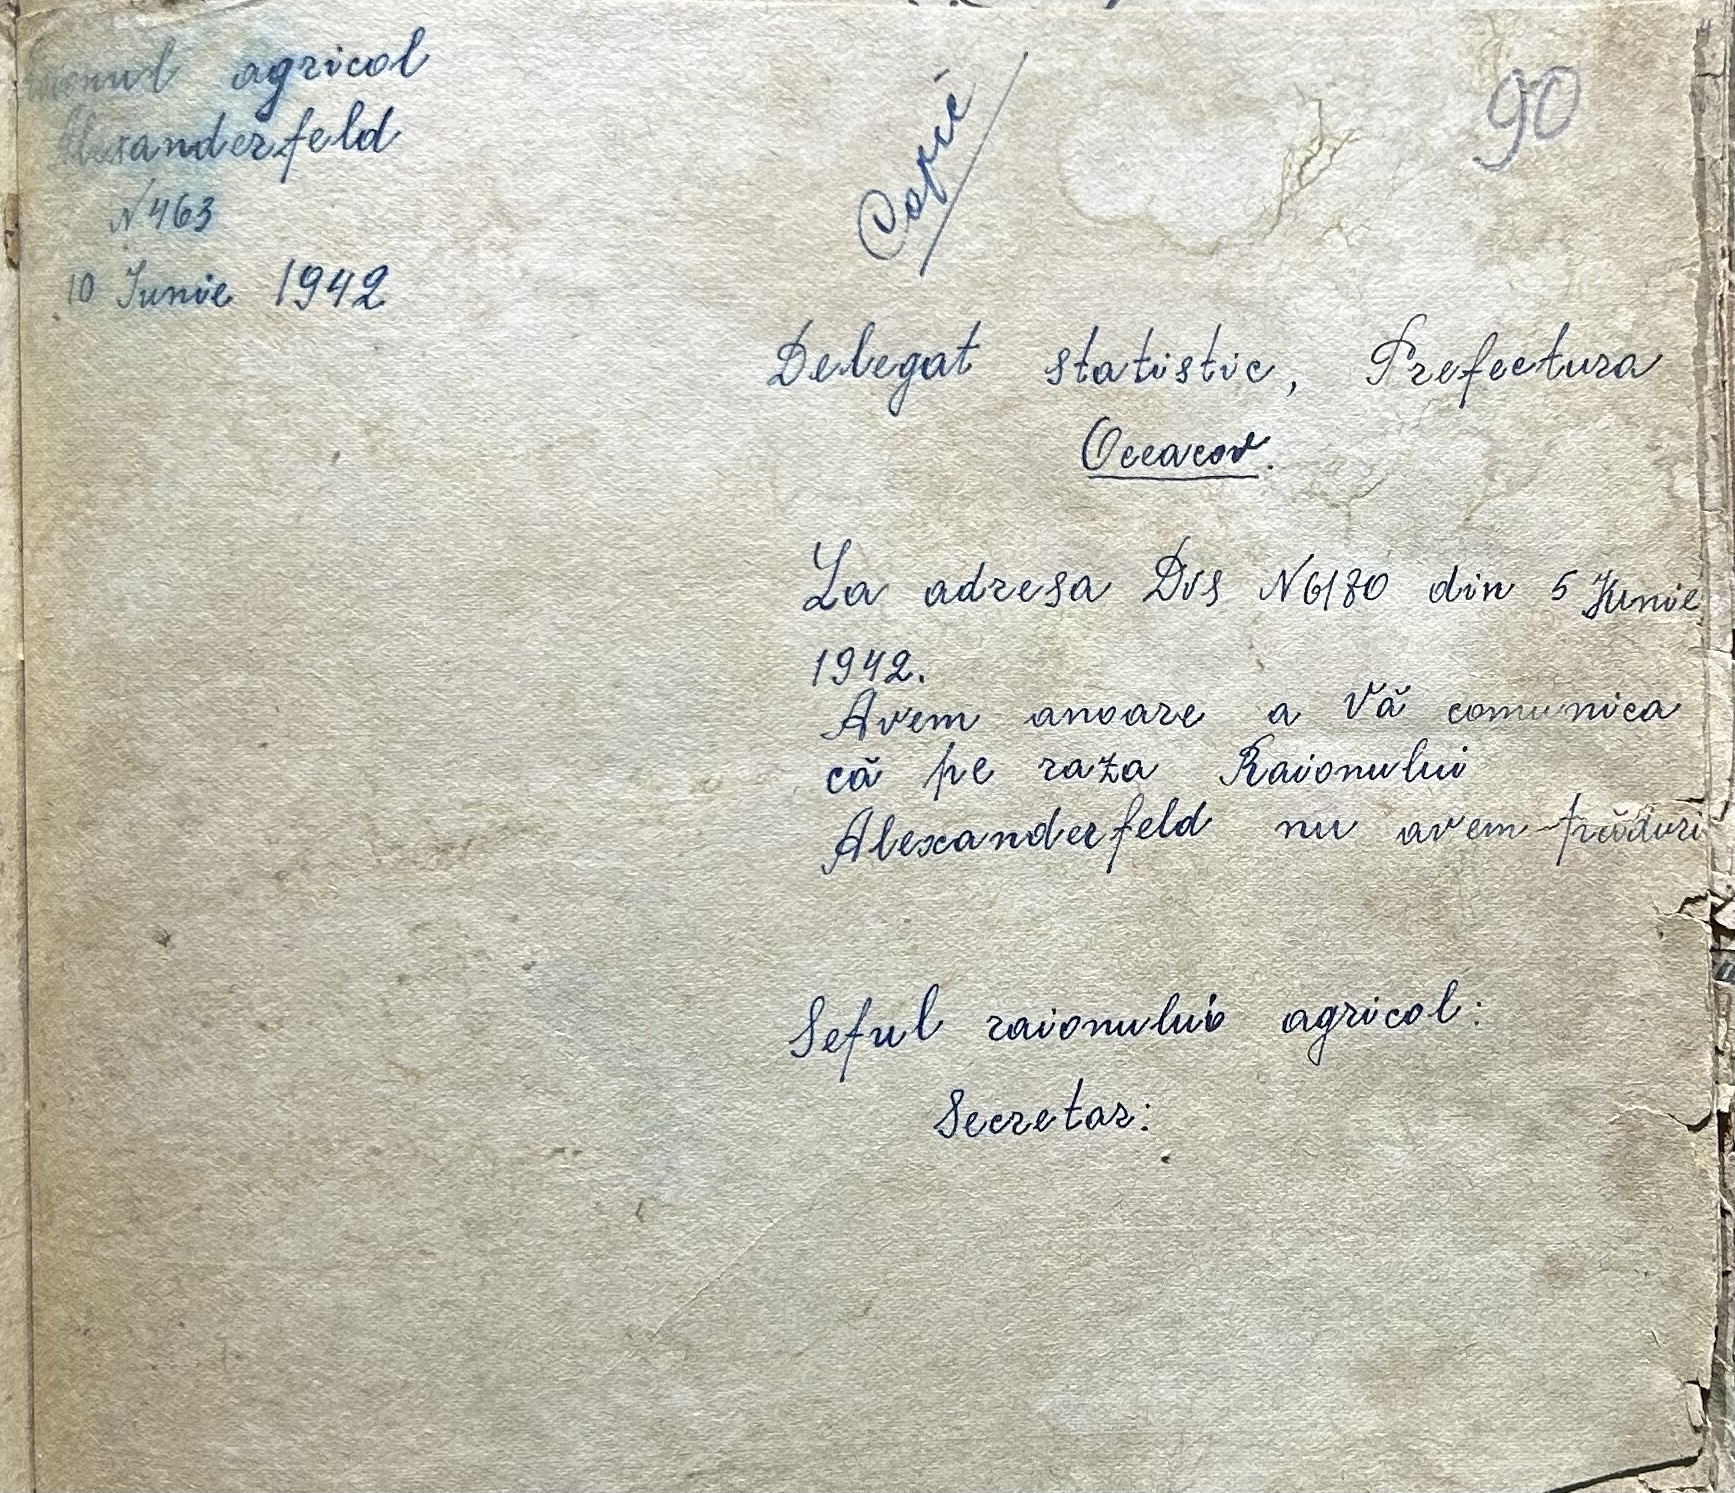 agricol
Alexanderfeld
N 463
10 Iunie 1942
Copie
90
Delegat statistic, Prefectura
Occacov.
La adresa Dvs N6180 din 5 Iunie
1942.
Avem anoare a Vă comunica
că pe raza Raionului
Alexanderfeld nu avem păduri
Seful raionului agricol:
Secretar: